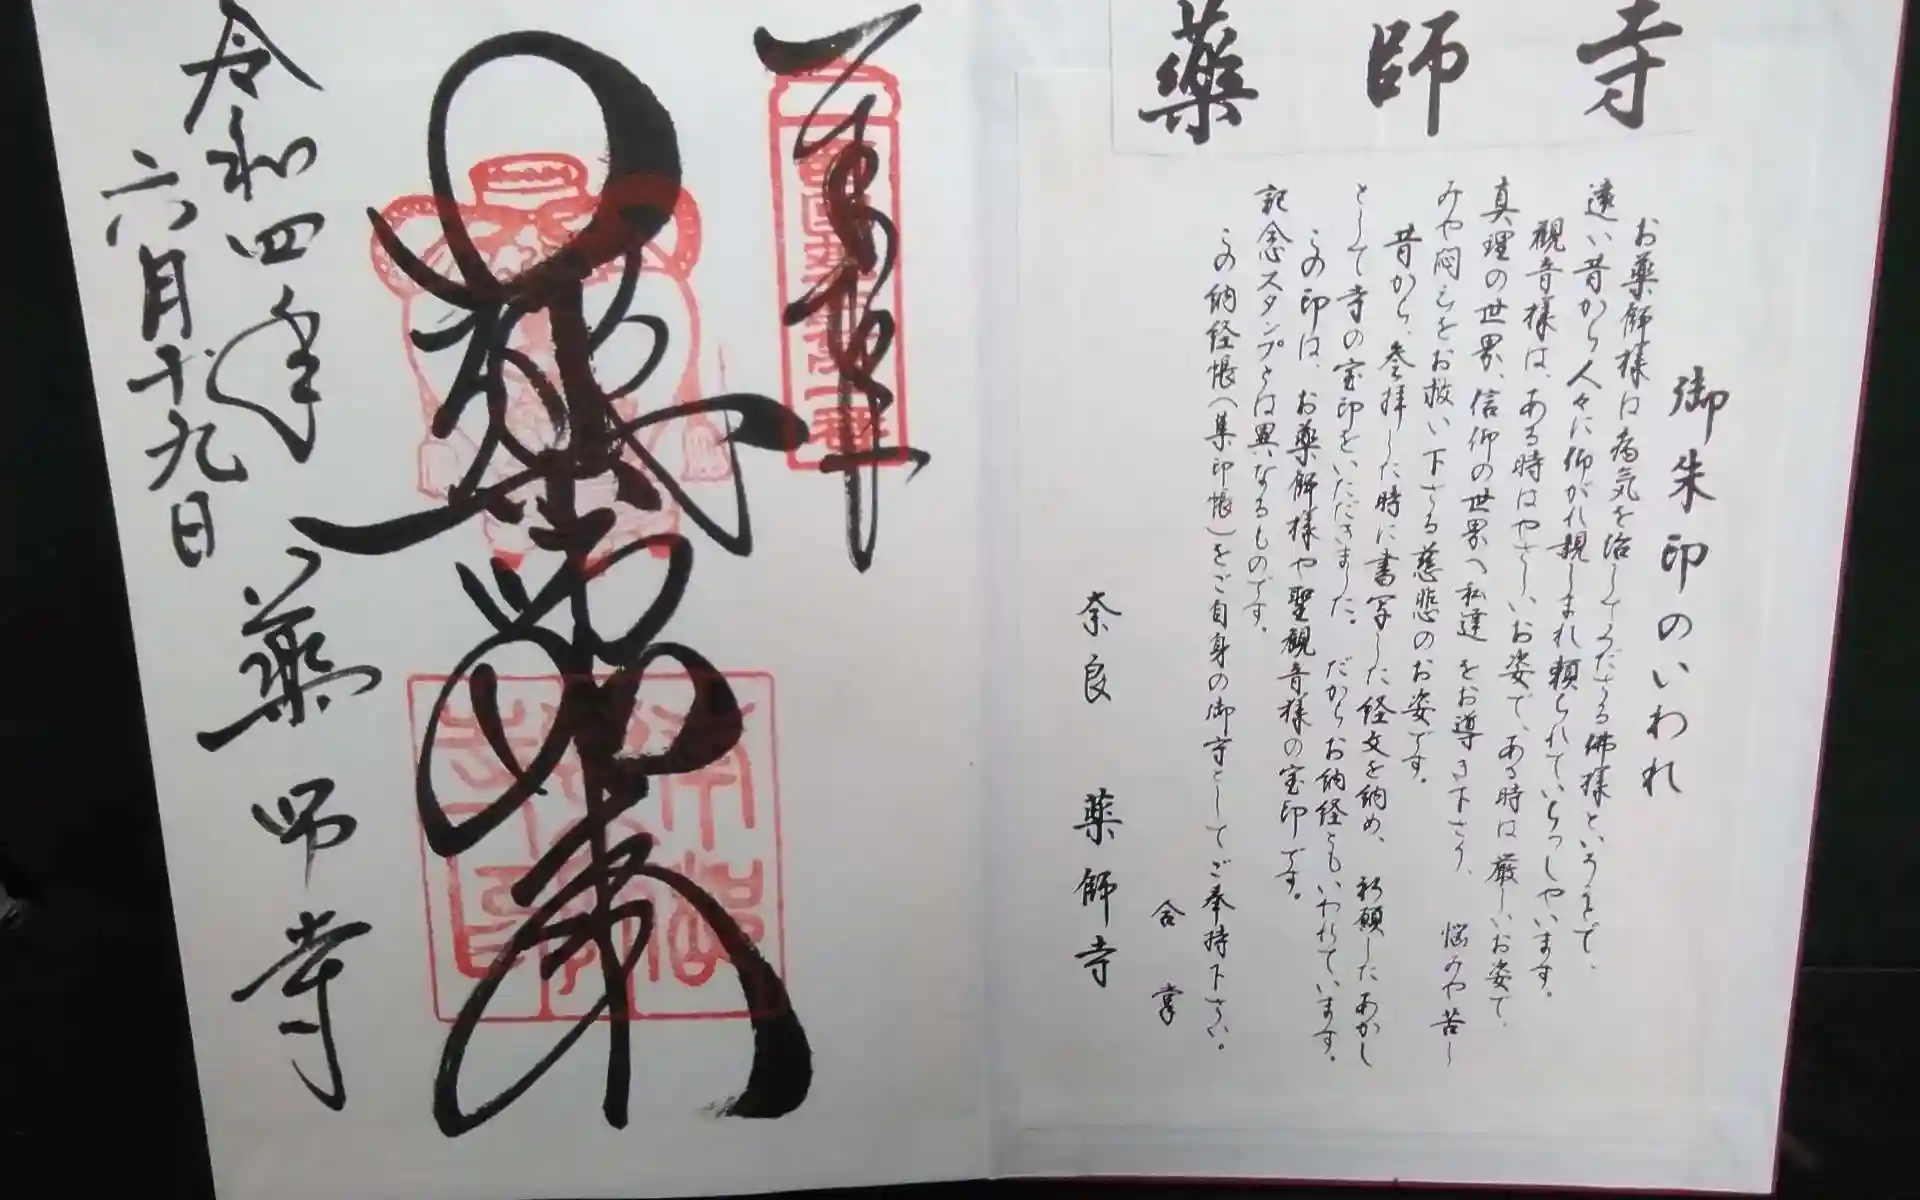 薬師寺
御朱印のいわれ
お薬師様は病気を治して下ださる佛様というまで、
遠い昔から人々に仰がれ親しまれ頼られていらっしゃいます。
観音様は、ある時はやさしいお姿で、ある時は厳しいお姿で、
真理の世界、信仰の世界へ私達をお導き下さり、悩みや苦し
みや悶えをお救い下さる慈悲のお姿です。
昔から、参拝した時に書写した経文を納め、祈願したあかし
として寺の宝印をいただきました。だからお納経ともいわれています。
この印は、お薬師様や聖観音様の宝印です。
記念スタンプとは異なるものです。
この納経帳(集印帳)をご自身の御守としてご奉持下さい。
合掌
奈良 薬師寺
奉拝
薬師如来
令和四年
六月十九日
薬師寺